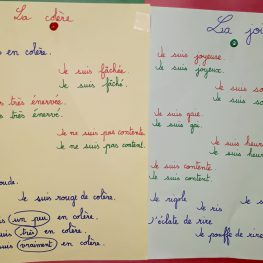 La colère
s en colère.
Je suis fâchée.
Je suis fâché.
s très énervée.
s très énervé.
Je ne suis pas contente.
Je ne suis pas content.
oude.
Je suis rouge de colère.
s un peu en colère.
uis très en colère.
suis vraiment en colère.
La joi
Je suis joyeuse.
Je suis joyeux.
Je suis
Je suis
Je suis gaie.
Je suis gai.
Je suis heur
Je suis heur
Je suis contente.
Je suis content.
Je rigole
Je ris
Je
J'éclate de rire
Je pouffe de rire